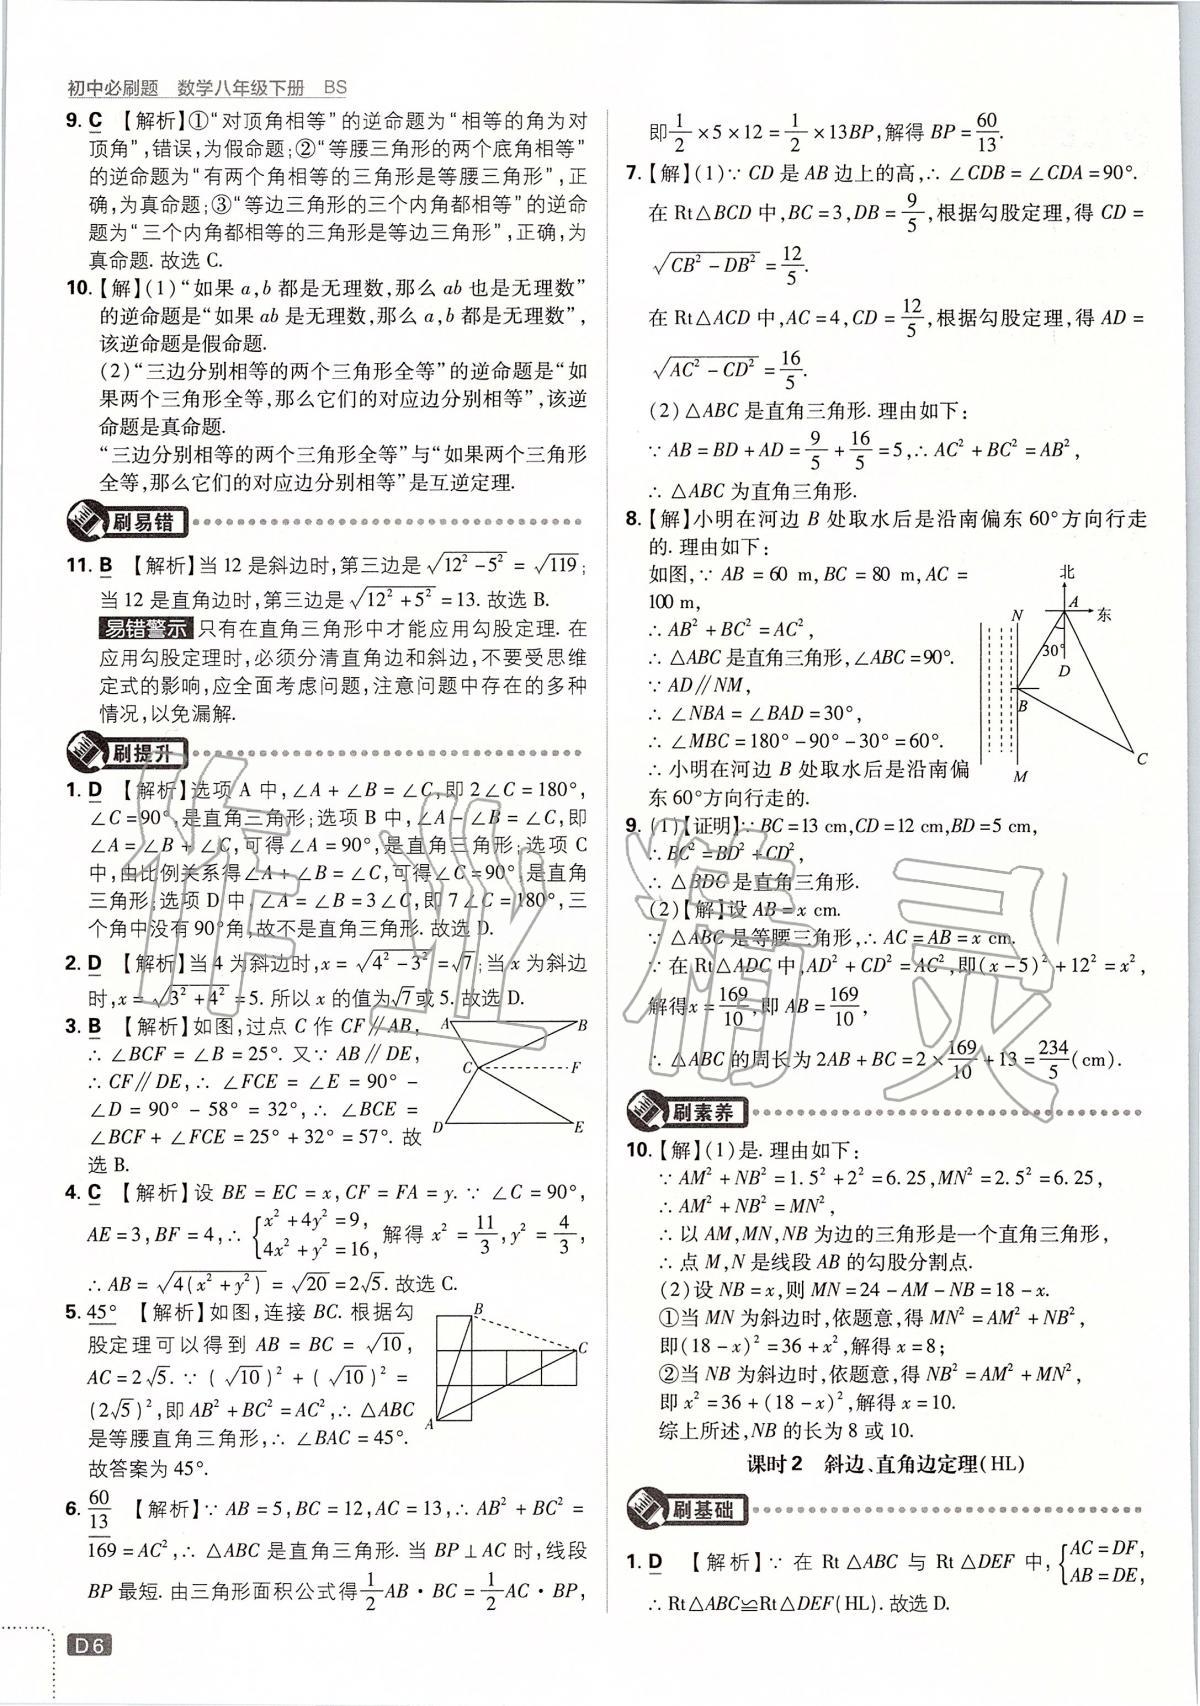 初中必刷题 数学八年级下册 BS
9. C 【解析】①“对顶角相等”的逆命题为“相等的角为对
顶角”,错误,为假命题;②“等腰三角形的两个底角相等”
的逆命题为“有两个角相等的三角形是等腰三角形”,正
确,为真命题;③“等边三角形的三个内角都相等”的逆命
题为“三个内角都相等的三角形是等边三角形”,正确,为
真命题. 故选 C.
10.【解】(1)“如果 a,b 都是无理数,那么 ab 也是无理数”
的逆命题是“如果 ab 是无理数,那么 a,b 都是无理数”,
该逆命题是假命题.
(2)“三边分别相等的两个三角形全等”的逆命题是“如
果两个三角形全等,那么它们的对应边分别相等”,该逆
命题是真命题.
“三边分别相等的两个三角形全等”与“如果两个三角形
全等,那么它们的对应边分别相等”是互逆定理.
刷易错
11. B 【解析】当 12 是斜边时,第三边是√(12²-5²) = √119;
当 12 是直角边时,第三边是√(12²+5²) =13. 故选 B.
易错警示 只有在直角三角形中才能应用勾股定理. 在
应用勾股定理时,必须分清直角边和斜边,不要受思维
定式的影响,应全面考虑问题,注意问题中存在的多种
情况,以免漏解.
刷提升
1. D 【解析】选项 A 中,∠A+∠B=∠C,即 2∠C=180°,
∠C=90°,是直角三角形;选项 B 中,∠A-∠B=∠C,即
∠A=∠B+∠C,可得∠A=90°,是直角三角形;选项 C
中,由比例关系得∠A+∠B=∠C,可得∠C=90°,是直角
三角形;选项 D 中,∠A=∠B=3∠C,即 7∠C=180°,三
个角中没有 90°角,故不是直角三角形. 故选 D.
2. D 【解析】当 4 为斜边时,x=√(4²-3²)=√7;当 x 为斜边
时,x=√(3²+4²)=5. 所以 x 的值为√7或 5. 故选 D.
3. B 【解析】如图,过点 C 作 CF∥AB,
∴ ∠BCF=∠B=25°. 又∵ AB∥DE,
∴ CF∥DE,∴ ∠FCE=∠E=90°-
∠D=90°-58°=32°,∴ ∠BCE=
∠BCF+∠FCE=25°+32°=57°. 故
选 B.
A B C F D E
4. C 【解析】设 BE=EC=x,CF=FA=y. ∵ ∠C=90°,
AE=3,BF=4,∴ {x²+4y²=9, 4x²+y²=16, 解得 x²=11/3,y²=4/3,
∴ AB=√(4(x²+y²))=√20=2√5. 故选 C.
5. 45° 【解析】如图,连接 BC. 根据勾
股定理可以得到 AB=BC=√10,
AC=2√5. ∵ (√10)²+(√10)²=
(2√5)²,即 AB²+BC²=AC²,∴ △ABC
是等腰直角三角形,∴ ∠BAC=45°.
故答案为 45°.
A B C
6. 60/13 【解析】∵ AB=5,BC=12,AC=13,∴ AB²+BC²=
169=AC²,∴ △ABC 是直角三角形. 当 BP⊥AC 时,线段
BP 最短. 由三角形面积公式得1/2AB·BC=1/2AC·BP,
D6
即1/2×5×12=1/2×13BP,解得 BP=60/13.
7.【解】(1)∵ CD 是 AB 边上的高,∴ ∠CDB=∠CDA=90°.
在 Rt△BCD 中,BC=3,DB=9/5,根据勾股定理,得 CD=
√(CB²-DB²)=12/5.
在 Rt△ACD 中,AC=4,CD=12/5,根据勾股定理,得 AD=
√(AC²-CD²)=16/5.
(2)△ABC 是直角三角形. 理由如下:
∵ AB=BD+AD=9/5+16/5=5,∴ AC²+BC²=AB²,
∴ △ABC 为直角三角形.
8.【解】小明在河边 B 处取水后是沿南偏东 60°方向行走
的. 理由如下:
如图,∵ AB=60 m,BC=80 m,AC=
100 m,
∴ AB²+BC²=AC²,
∴ △ABC 是直角三角形,∠ABC=90°.
∵ AD∥NM,
∴ ∠NBA=∠BAD=30°,
∴ ∠MBC=180°-90°-30°=60°,
∴ 小明在河边 B 处取水后是沿南偏
东 60°方向行走的.
北 A 东 N 30° D B C M
9. (1)【证明】∵ BC=13 cm,CD=12 cm,BD=5 cm,
∴ BC²=BD²+CD²,
∴ △BDC 是直角三角形.
(2)【解】设 AB=x cm.
∵ △ABC 是等腰三角形,∴ AC=AB=x cm.
∵ 在 Rt△ADC 中,AD²+CD²=AC²,即(x-5)²+12²=x²,
解得x=169/10,即 AB=169/10,
∴ △ABC 的周长为 2AB+BC=2×169/10+13=234/5(cm).
刷素养
10.【解】(1)是. 理由如下:
∵ AM²+NB²=1.5²+2²=6.25,MN²=2.5²=6.25,
∴ AM²+NB²=MN²,
∴ 以 AM,MN,NB 为边的三角形是一个直角三角形,
∴ 点 M,N 是线段 AB 的勾股分割点.
(2)设 NB=x,则 MN=24-AM-NB=18-x.
①当 MN 为斜边时,依题意,得 MN²=AM²+NB²,
即(18-x)²=36+x²,解得 x=8;
②当 NB 为斜边时,依题意,得 NB²=AM²+MN²,
即 x²=36+(18-x)²,解得 x=10.
综上所述,NB 的长为 8 或 10.
课时2 斜边、直角边定理(HL)
刷基础
1. D 【解析】∵ 在 Rt△ABC 与 Rt△DEF 中,{AC=DF, AB=DE,
∴ Rt△ABC≌Rt△DEF(HL). 故选 D.
作业精灵